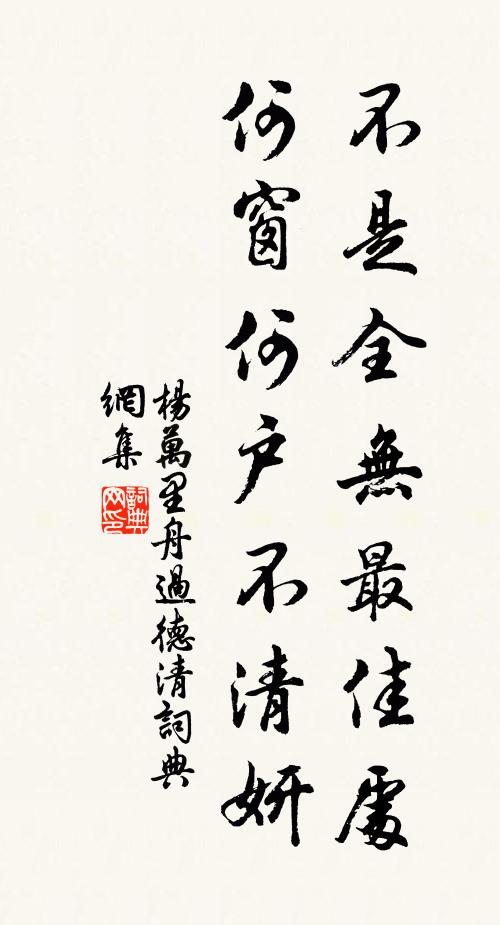 不是全無最佳處
何窗何户不清妍
楊萬里舟過德清詞典
網集
詞典
网印